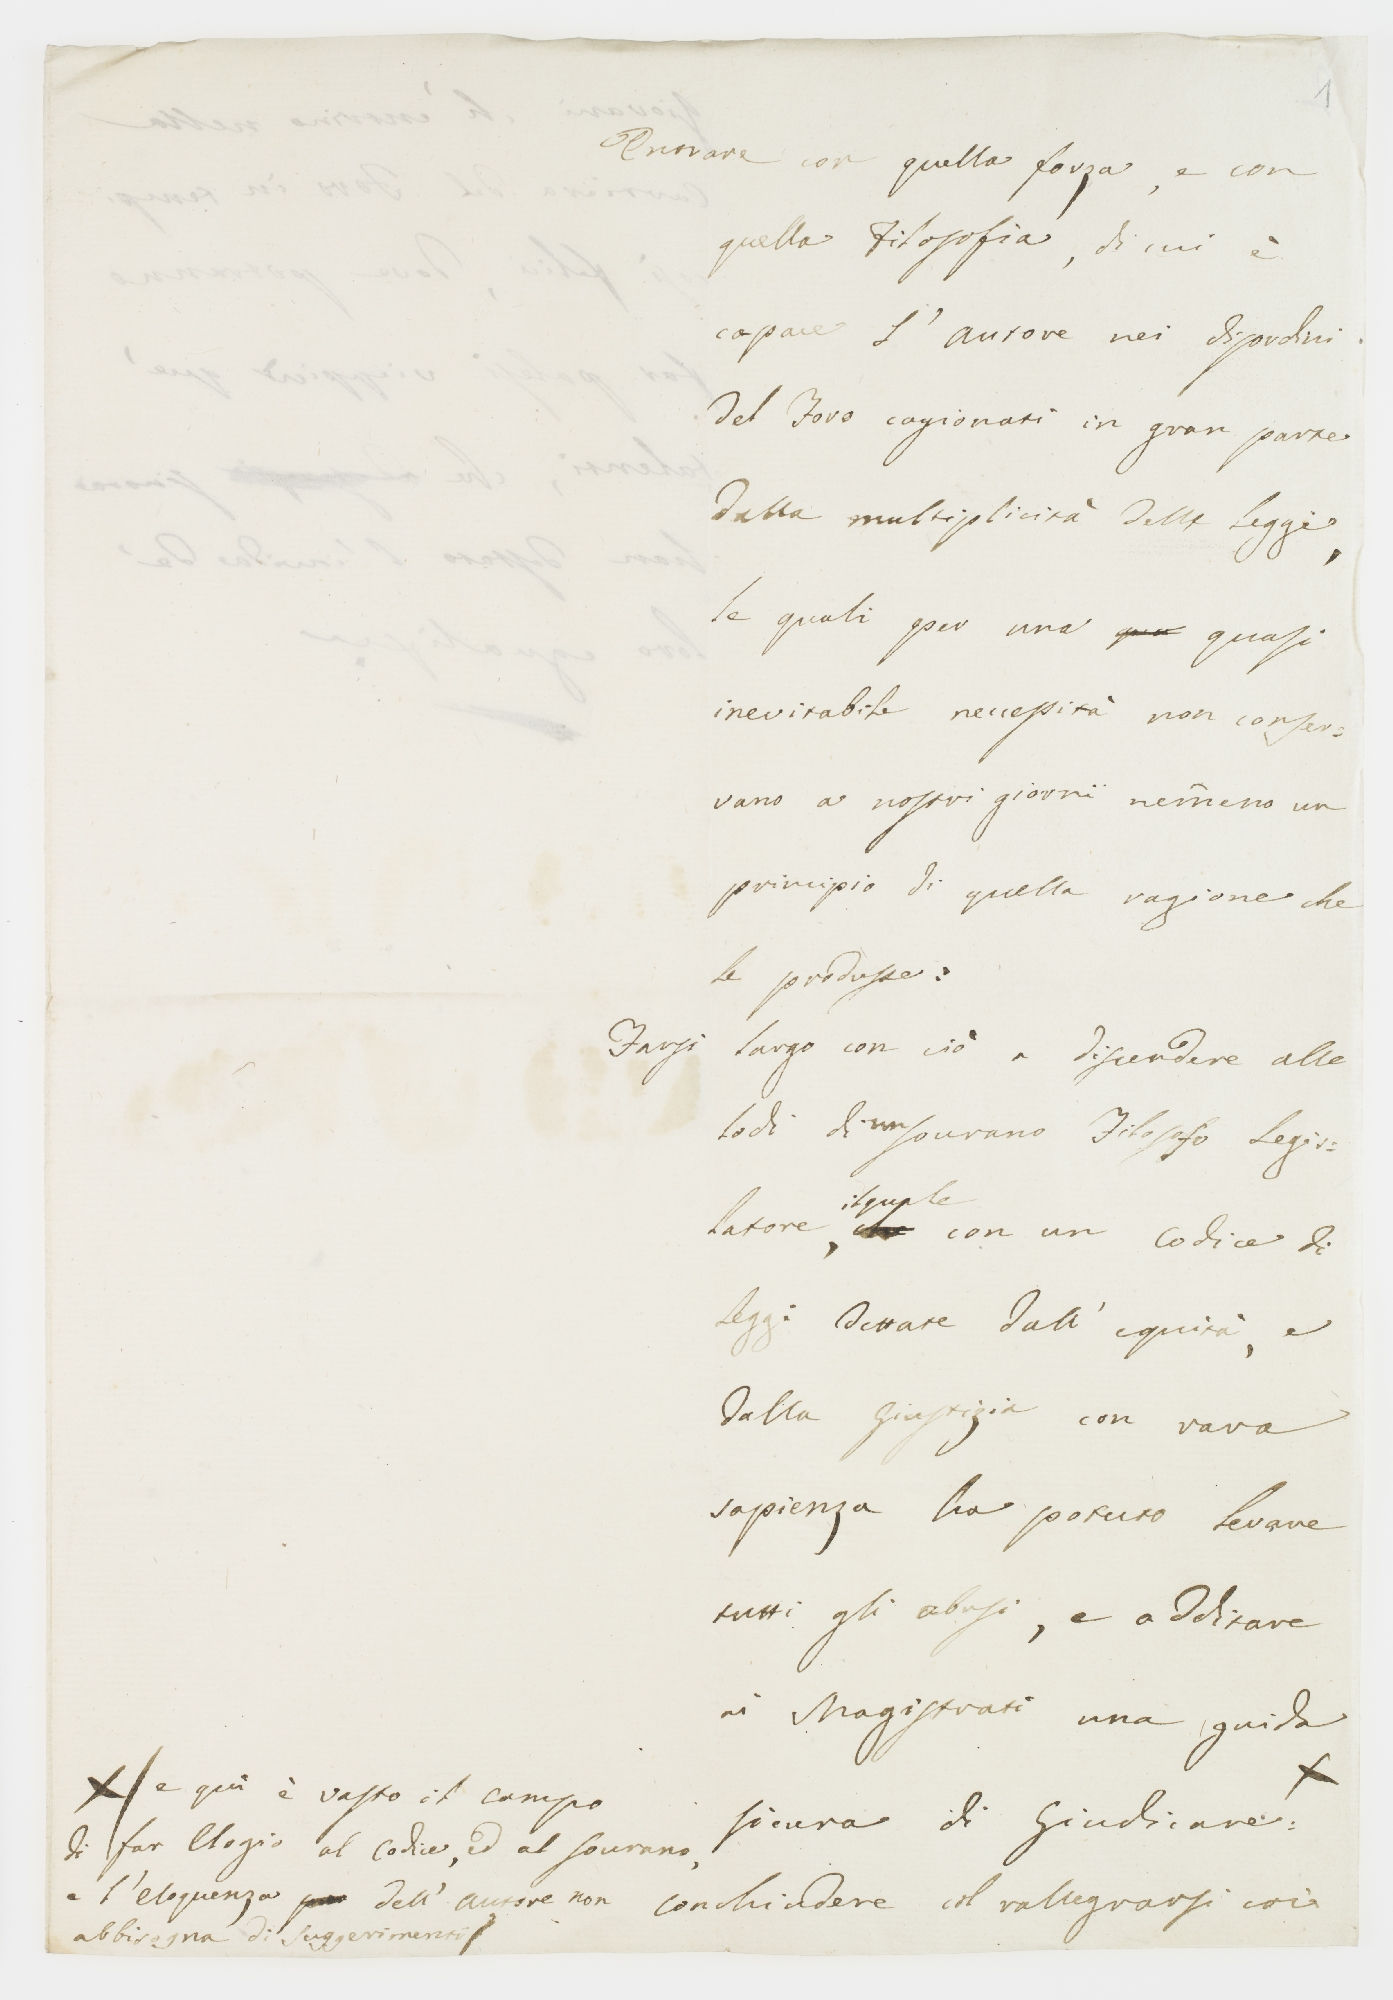 1
Entrare con quella forza, e con
quella Filosofia, di cui è
capace l'autore nei disordini
del Foro cagionati in gran parte
dalla multiplicità delle leggi,
le quali per una qua quasi
inevitabile necessità non conser=
vano a nostri giorni nem̃eno un
principio di quella ragione che
le produsse:
Farsi largo con ciò a discendere alle
lodi di un sovrano Filosofo Legis=
latore, che il quale con un codice di
leggi dettate dall'equità, e
dalla Giustizia con rara
sapienza ha potuto levare
tutti gli abusi, e additare
ai Magistrati una guida
sicura di Giudicare: X
X/ e quì è vasto il campo
di far Elogio al codice, ed al sovrano,
e l'eloquenza dell'autore non
abbisogna di suggerimenti/
conchiudere col rallegrarsi coi